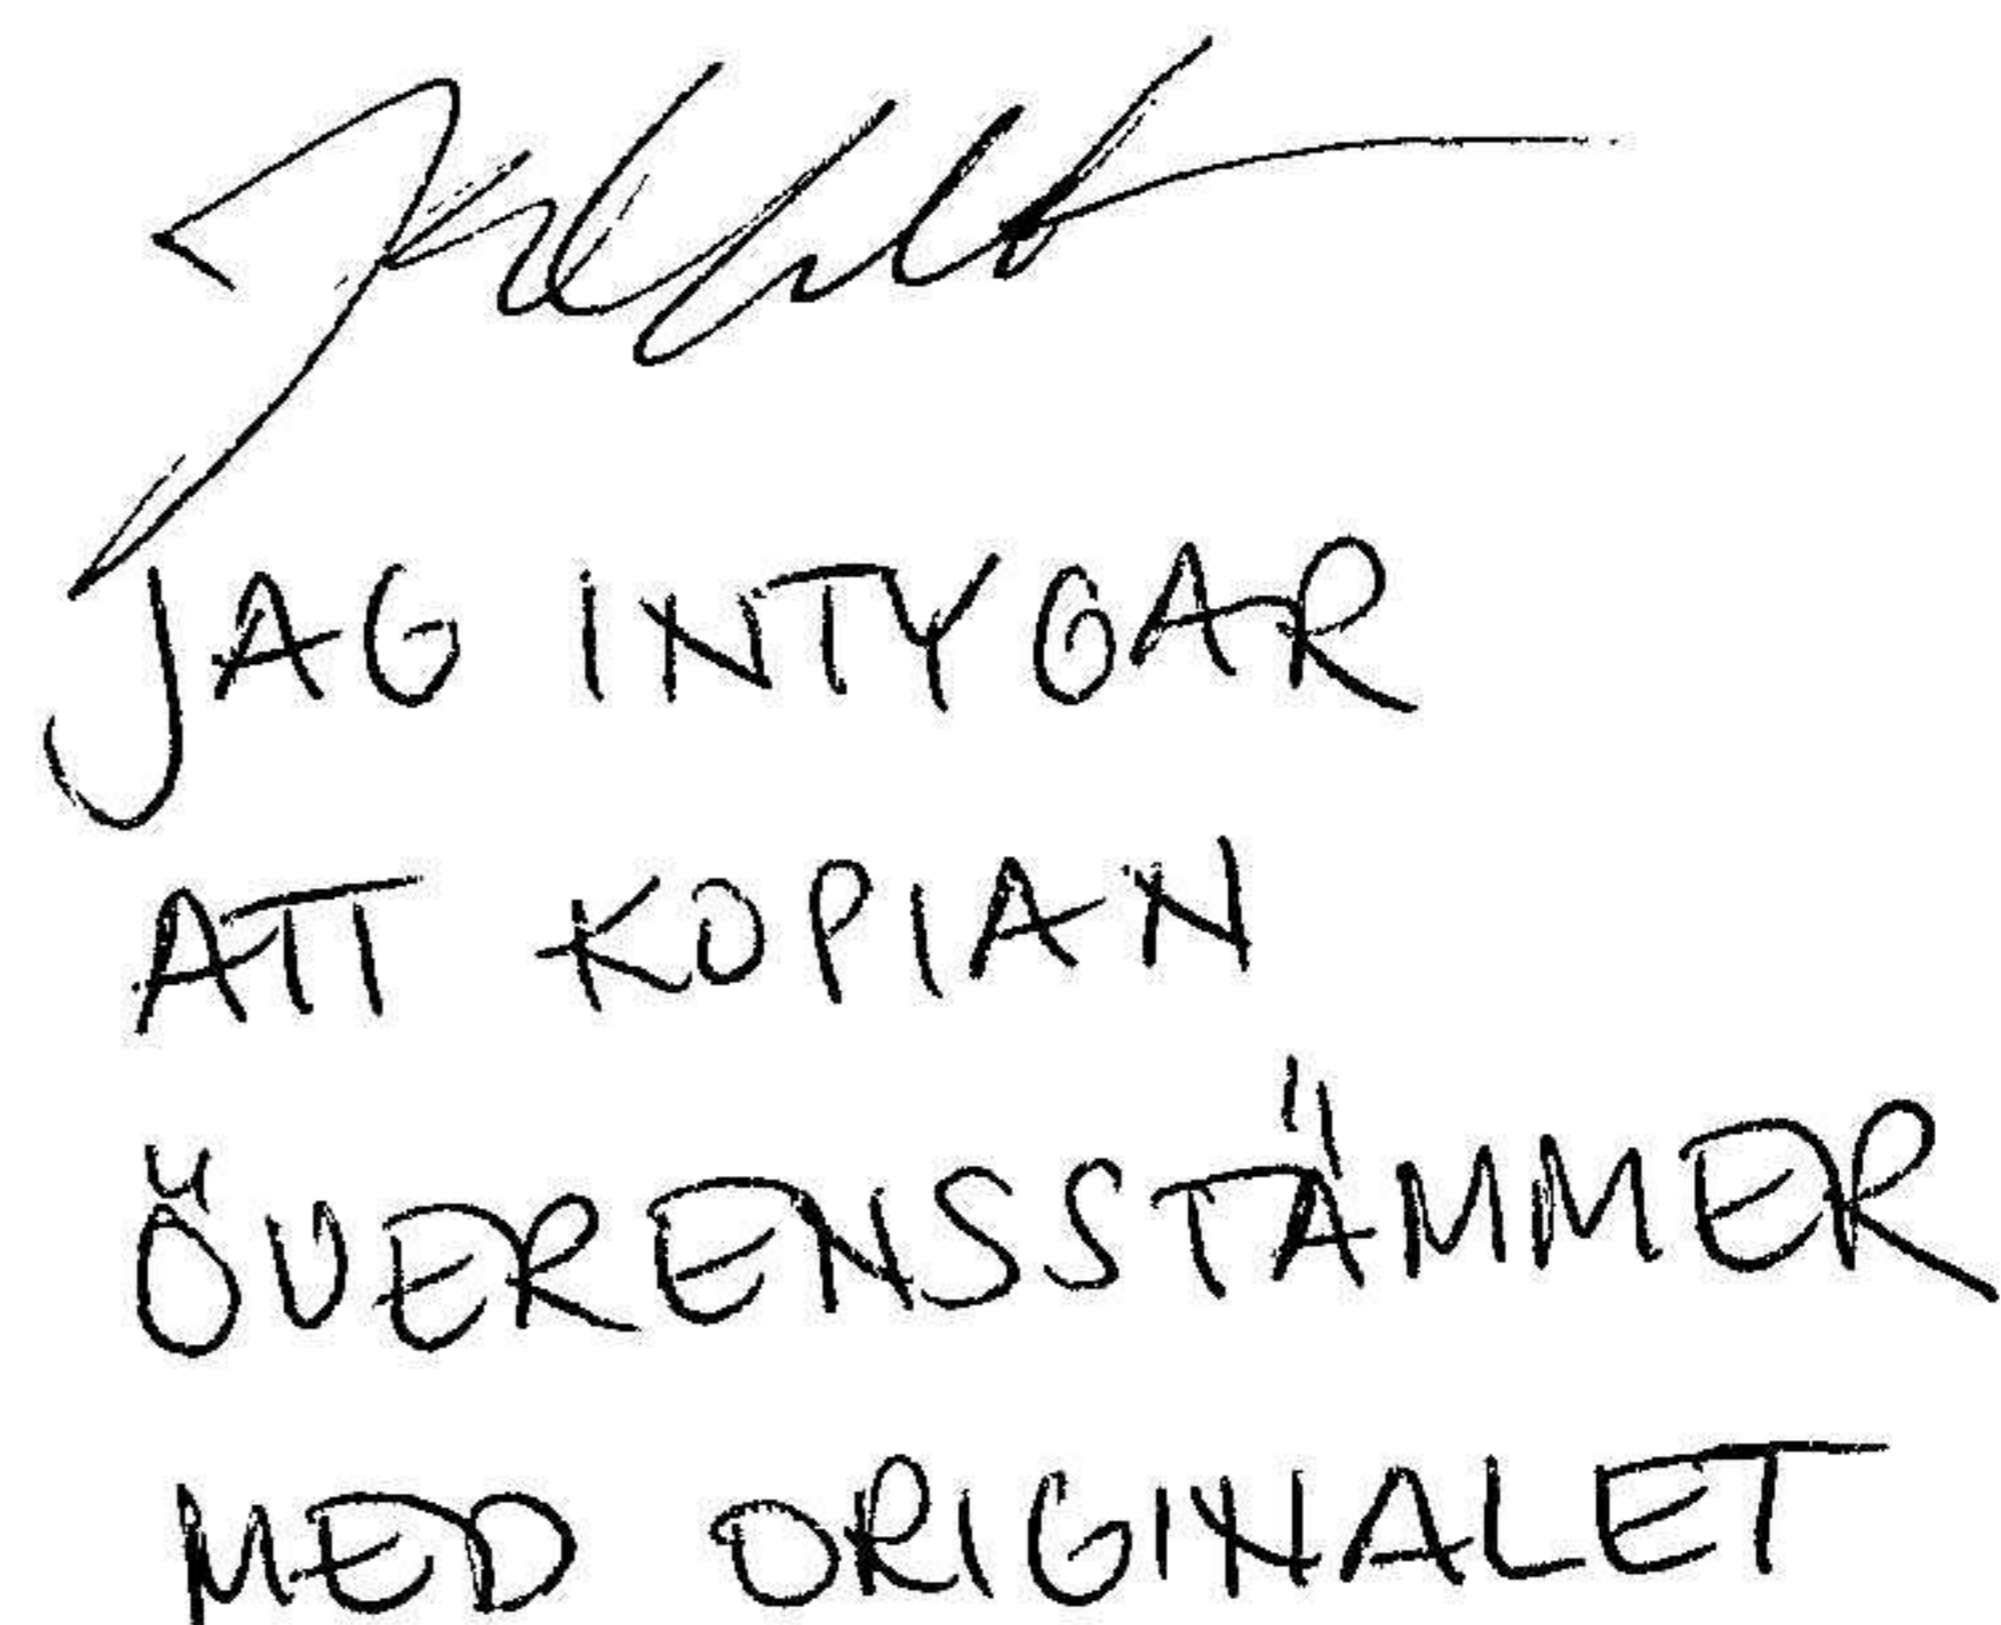 JAG INTYGAR
ATT KOPIAN
ÖVERENSSTÄMMER
MED ORIGINALET